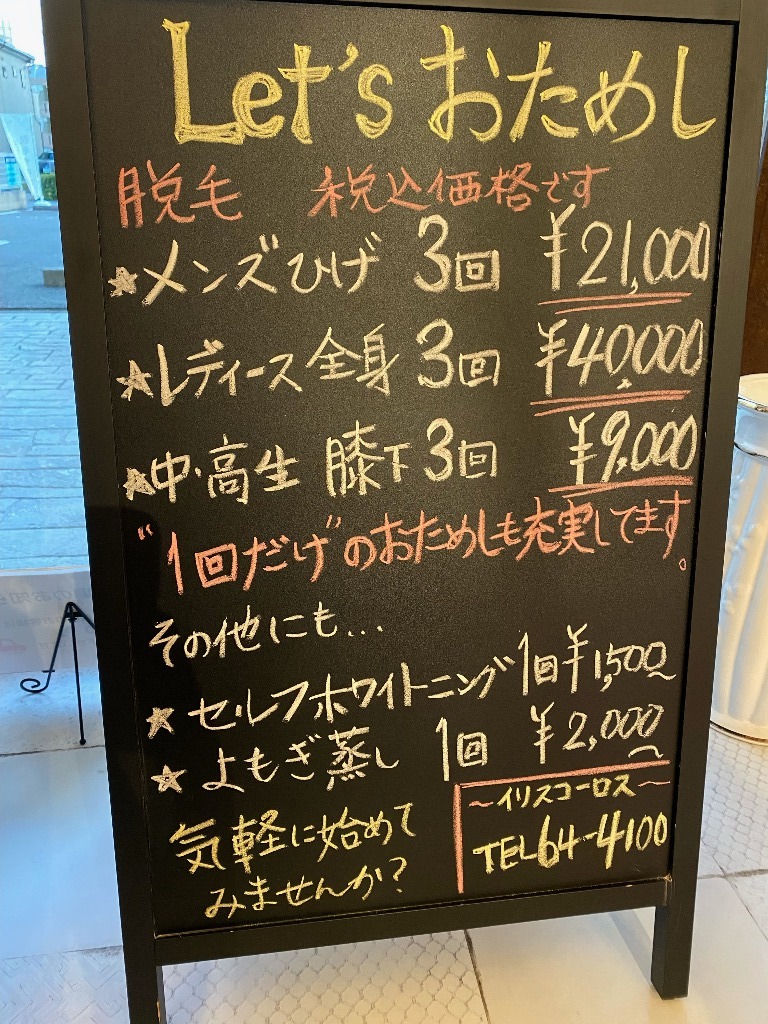 Let's おためし
脱毛 税込価格です
★メンズひげ 3回 ¥21,000
★レディース全身 3回 ¥40,000
★中・高生 膝下3回 ¥9,000
"1回だけ"のおためしも充実してます。
その他にも...
★ セルフホワイトニング 1回 ¥1,500~
★ よもぎ蒸し 1回 ¥2,000~
気軽に始めて
みませんか?
~イリスコーロス~
TEL64-4100